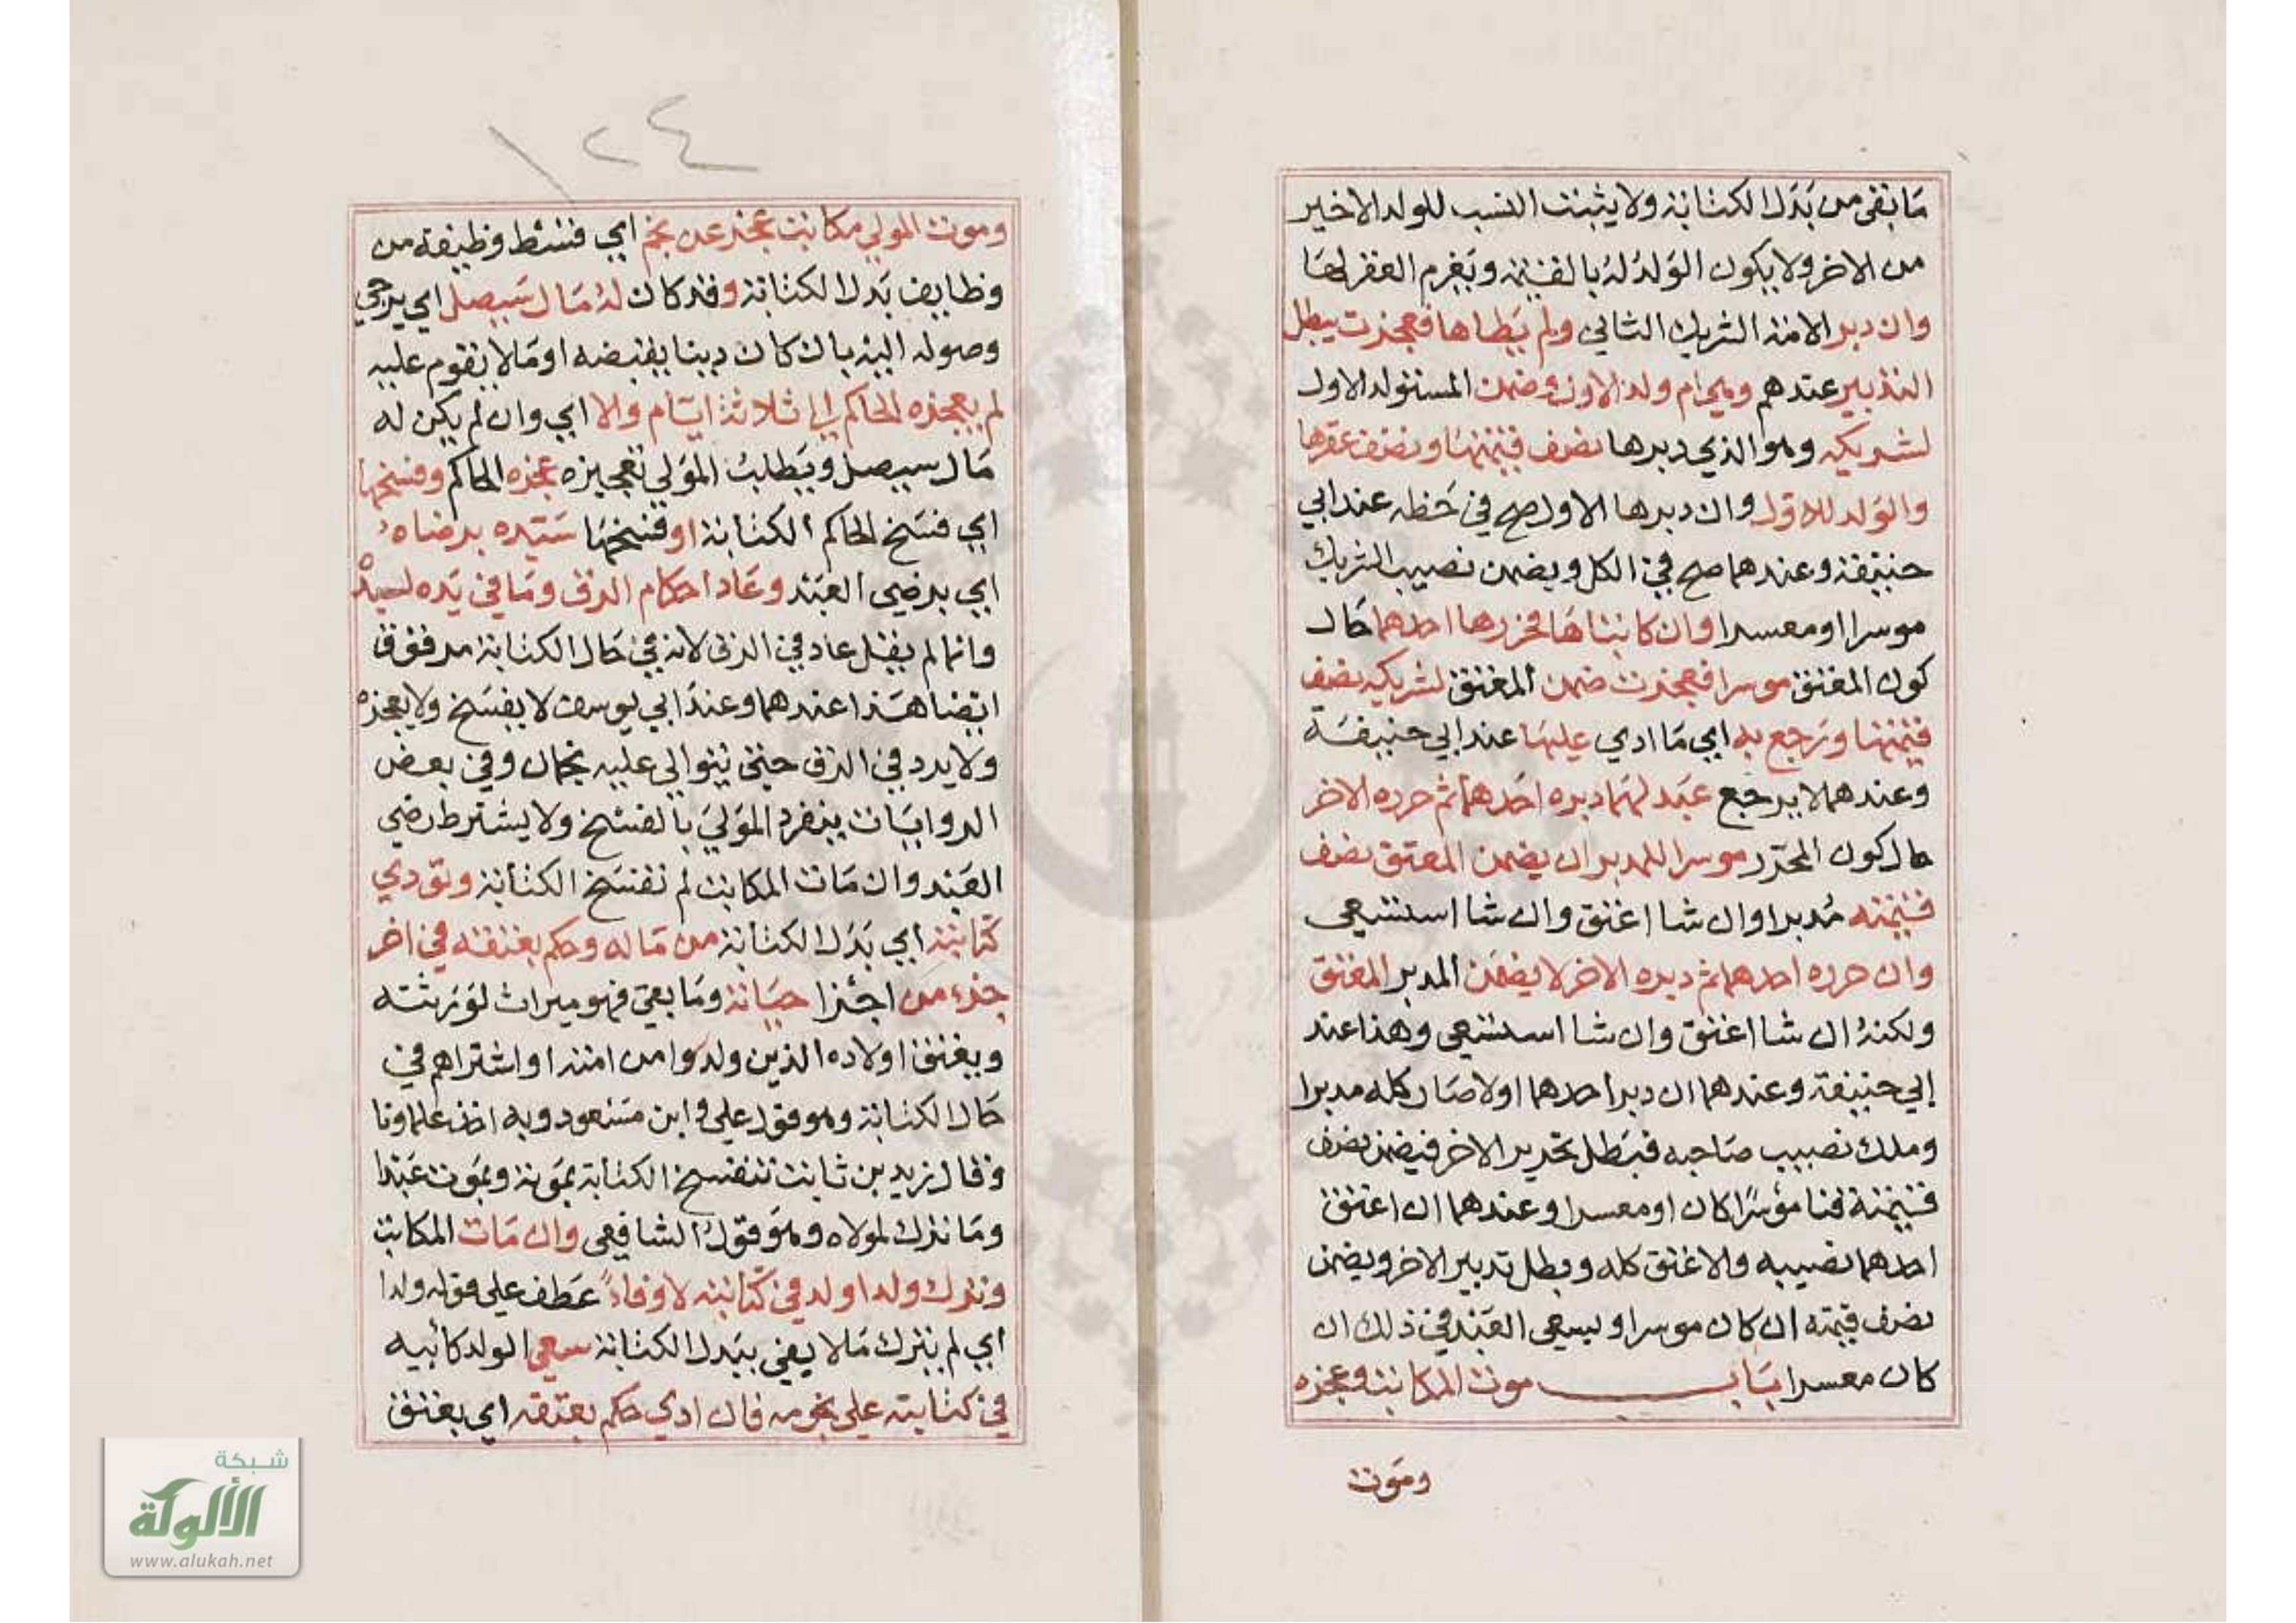 ما بقى من بدل الكتابة ولا يثبت النسب للولد الاخير
من الاخر ولا يكون الولد له بالقيمة ويغرم العقر لها
وان دبر الامة الشريك الثاني ولم يطاها فعجزت يبطل
التدبير عندهم وهي ام ولد الاول وضمن المستولد الاول
لشريكه وهو الذي دبرها نصف قيمتها ونصف عقرها
والولد للاول وان دبرها الاول صح في حظه عند ابي
حنيفة وعندهما صح في الكل ويضمن نصيب الشريك
موسرا او معسرا وان كاتباها فحررها احدهما حال
كون المعتق موسرا فعجزت ضمن المعتق لشريكه نصف
قيمتها ورجع به ايي ما ادي عليها عند ابي حنيفة
وعندهما لا يرجع عبد لهما دبره احدهما ثم حرره الاخر
حال كون المحرر موسرا للمدبر ان يضمن المعتق نصف
قيمته مدبرا وان شا اعتق وان شا استسعي
وان حرره احدهما ثم دبره الاخر لا يضمن المدبر المعتق
ولكنه ان شا اعتق وان شا استسعي وهذا عند
ابي حنيفة وعندهما ان دبر احدهما اولا صار كله مدبرا
وملك نصيب صاحبه فبطل تحرير الاخر فيضمن نصف
قيمته قنا موسرا كان او معسرا وعندهما ان اعتق
احدهما نصيبه والا عتق كله وبطل تدبير الاخر ويضمن
نصف قيمته ان كان موسرا ويسعي العبد في ذلك ان
كان معسرا باب موت المكاتب وعجزه
وموت
١٢٤
وموت المولي مكاتب عجز عن نجم ايي قسط وظيفة من
وظايف بدل الكتابة وقد كان له مال سيصل اي يرجي
وصوله اليه بان كان دينا يقبضه او مالا يقوم عليه
لم يعجزه الحاكم الي ثلاثة ايام والا ايي وان لم يكن له
مال سيصل ويطلب المولي تعجيزه عجزه الحاكم وفسخها
ايي فسخ الحاكم الكتابة او فسخها سيده برضاه
ايي برضي العبد وعاد احكام الرق وما في يده لسيده
وانما لم يقل عاد في الرق لانه في حال الكتابة مرقوق
ايضا هذا عندهما وعند ابي يوسف لا يفسخ ولا يعجزه
ولا يرد في الرق حتي يتوالي عليه نجمان وفي بعض
الروايات ينفرد المولي بالفسخ ولا يشترط رضي
العبد وان مات المكاتب لم تفسخ الكتابة وتؤدي
كتابته ايي بدل الكتابة من ماله وحكم بعتقه في اخر
جزء من اجزا حياته وما بقي فهو ميراث لورثته
ويعتق اولاده الذين ولدوا من امته او اشتراهم في
حال الكتابة وهو قول علي و ابن مسعود وبه اخذ علماونا
وقال زيد بن ثابت تنفسخ الكتابة بموته ويموت عبدا
وما ترك لمولاه وهو قول الشافعي وان مات المكاتب
وترك ولدا ولد في كتابته لا وفاء عطف علي قوله ولدا
ايي لم يترك مالا يفي ببدل الكتابة سعي الولد كابيه
في كتابته علي نجومه فان ادي حكم بعتقه ايي يعتق
شبكة
الألوكة
www.alukah.net